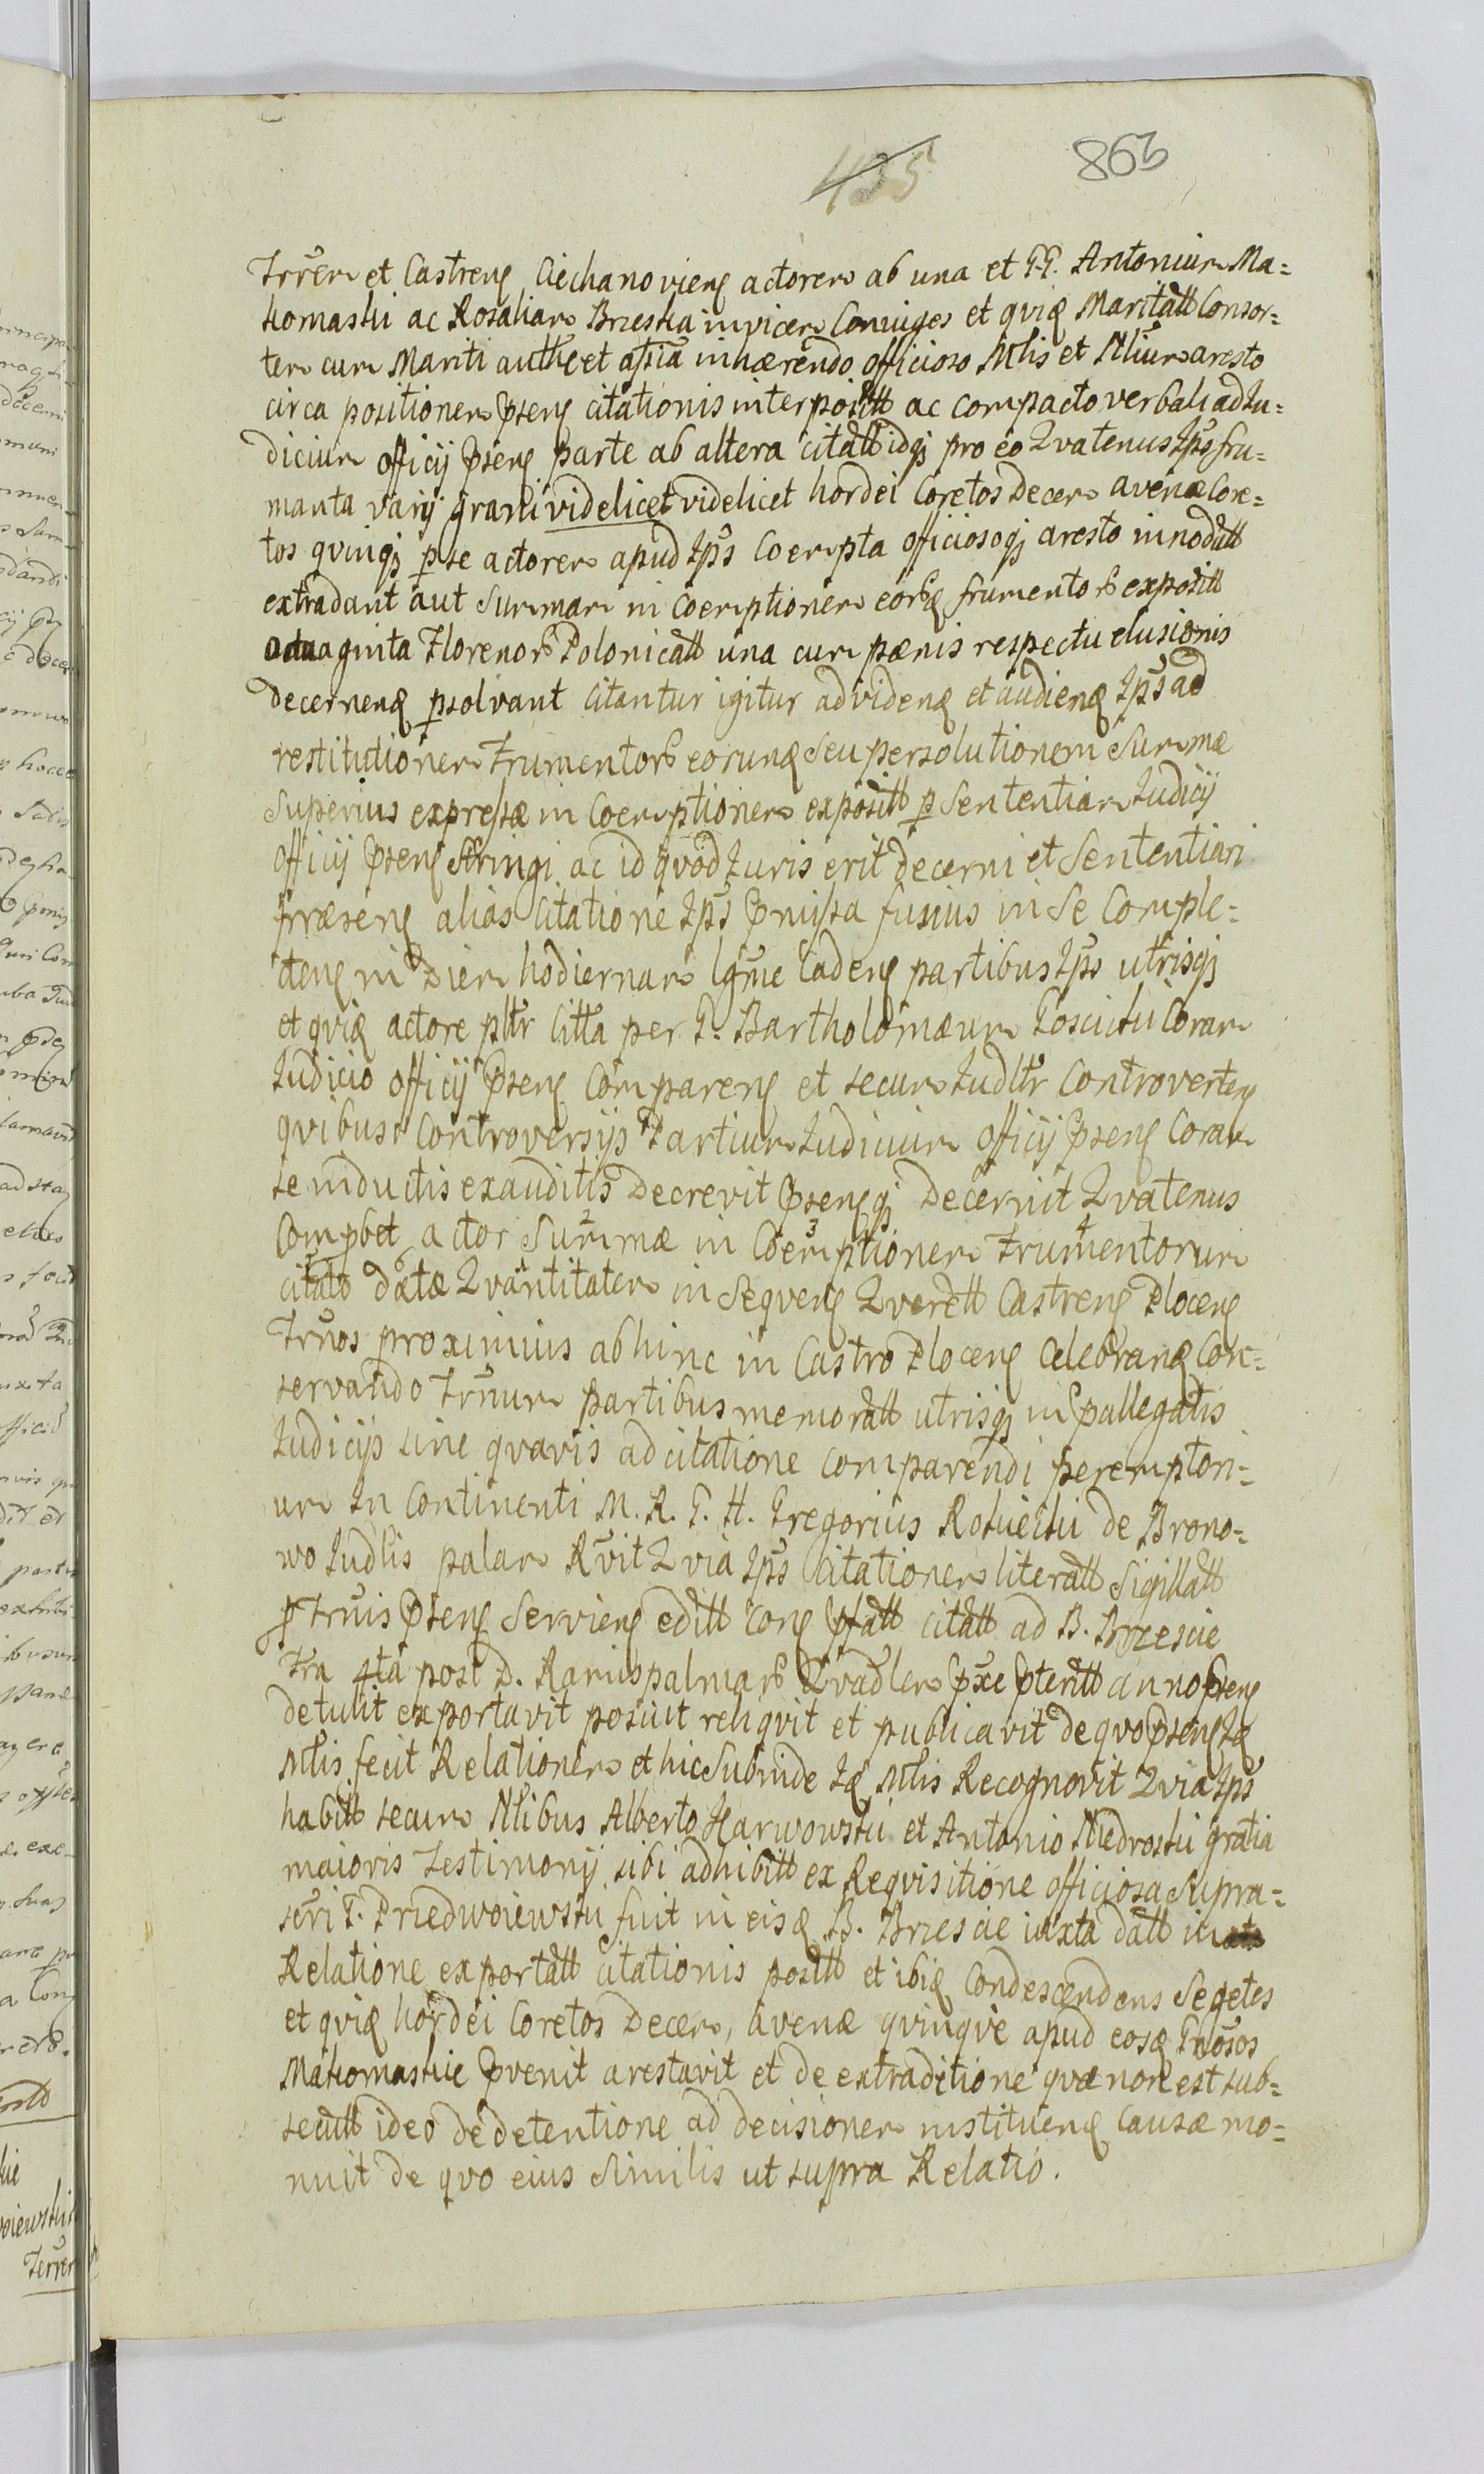 435 863
Trrem et Castrens Ciechanoviens actorem ab una et G.G. Antonium Ma=
komaski ac Rosaliam Brzeska invicem Coniuges et qvid Maritatt Consor=
tem cum Mariti authe et assia inhærendo officioso Mlis et Nlium aresto
circa positionem pseng citationis interpositt ac compacto verbali ad Iu=
dicium officij pseng parte ab altera citatt idqj pro eo Qvatenus Ips fru=
manta varij grani videlicet videlicet hordei Coretos Decem avenæ Core=
tos qvinqj p se actorem apud Ips Coempta officiosoqj aresto innodatt
extradant aut Summam in Coemptionem eorq frumentor exposit
octuaginta Florenor Polonicatt una cum pænis respectu elusionis
decernend psolvant Citantur igitur ad videnq et audienq Ips ad
restitutionem Frumentor eorunq Seu persolutionem Summæ
Superius expressæ in Coemptionem expositt p Sententiam Iudicij
officij pseng Stringi ac id qvod Iuris erit decerni et Sententiari
Præseng alias Citatione Ips pmissa fusius in Se Comple=
cteng in Diem hodiernam lgme Cadeng partibus Ips utrisqj
et qviq actore pltr Citta per G. Bartholomæum Goscicki Coram
Iudicio officij pseng Compareng et secum Iudltr Controverteng
qvibus Controversijs Partium Iudicium officij pseng Coram
se inductis exauditis Decrevit psengqj Decernit Qvatenus
Compbet actor Summæ in Coemptionem Frumentorum
citato datæ Qvantitatem in Seqveng Qverelt Castreng Ploceng
Trnos proximius abhinc in Castro Ploceng Celebranq Con=
servando Trnum partibus memoratt utrisqj in pallegatis
Iudicijs sine qvavis adcitatione comparendi peremptori=
um In Continenti M. R. G. H. Gregorius Rokicki de Brono=
wo Iudlis palam Rvit Qvia Ips Citationem literatt Sigillatt
p Trnis pseng Servieng editt Cong pfatt citatt ad B. Brzescie
Fra 4ta post D. Ramispalmar Qvadlem pxe pteritt anno pseng
detulit exportavit posuit reliqvit et publicavit de qvo pseng Iq
Mlis fecit Relationem et hic Subinde Iq Mlis Recognovit Qvia Ips
habitt secum Nlibus Alberto Harwowski et Antonio Niedroski gratia
maioris Testimonij sibi adhibitt ex Reqvisitione officiosa Supra=
scri G. Przedwoiewski fuit in eisq B. Brzescie iuxta datt in
Relatione exportatt citationis positt et ibiq Condescendens Segetes
et qviq hordei Coretos Decem, avenæ qvinqve apud eosq Gnosos
Makomaskie pvenit arestavit et de extraditione qvæ non est sub=
secutt ideo de detentione ad decisionem instituenq Causæ mo=
nuit de qvo eius Similis ut supra Relatio.